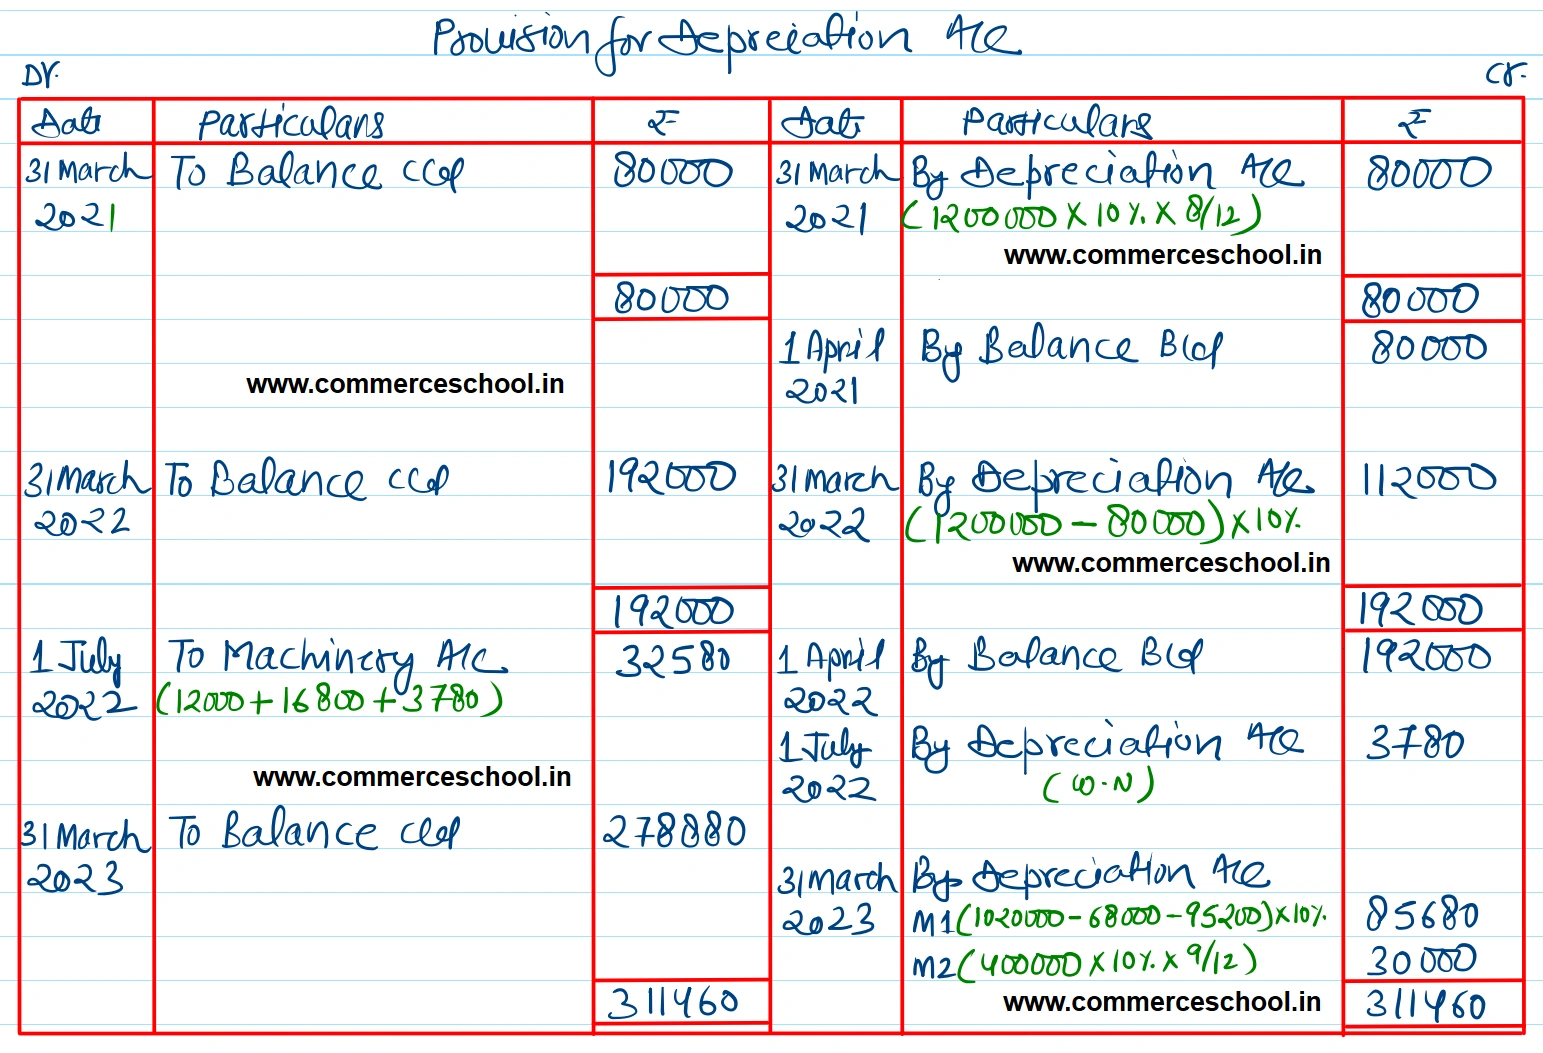 Provision for Depreciation A/c
Dr. Cr.
Date Particulars ₹ Date Particulars ₹
31 March To Balance c/d 80000 31 March By Depreciation A/c 80000
2021 2021 (1200000 × 10% × 8/12)
www.commerceschool.in
80000 80000
1 April By Balance B/d 80000
2021
www.commerceschool.in
31 March To Balance c/d 192000 31 March By Depreciation A/c 112000
2022 2022 (1200000 - 80000) × 10%
www.commerceschool.in
192000 192000
1 July To Machinery A/c 32580 1 April By Balance B/d 192000
2022 (12000 + 16800 + 3780) 2022
1 July By Depreciation A/c 3780
www.commerceschool.in 2022 (W.N)
31 March To Balance c/d 278880
2023
31 March By Depreciation A/c
2023 M1 (1020000 - 68000 - 95200) × 10% 85680
M2 (400000 × 10% × 9/12) 30000
311460 www.commerceschool.in 311460